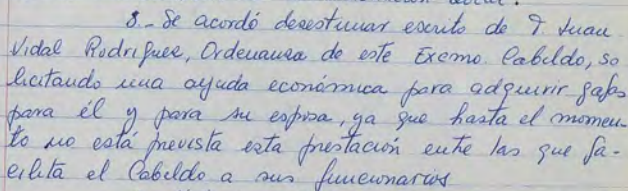 8.- Se acordó desestimar escrito de D. Juan
Vidal Rodríguez, Ordenanza de este Excmo. Cabildo, so
licitando una ayuda económica para adquirir gafas
para él y para su esposa, ya que hasta el momen-
to no está prevista esta prestación entre las que fa-
cilita el Cabildo a sus funcionarios